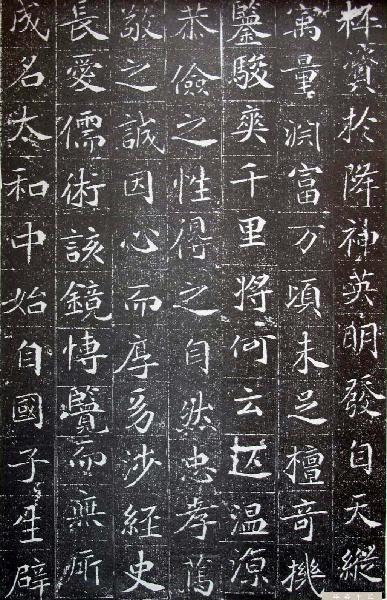 於降神英明發自天縱
寓量淵富万頃未足檀奇機
鑒駿爽千里將何云匹温涼
恭儉之性得之自然忠孝篤
敬之誠因心而厚涉經史
長愛儒術該鏡愽覽而無所
成名太和中始自國子生辟